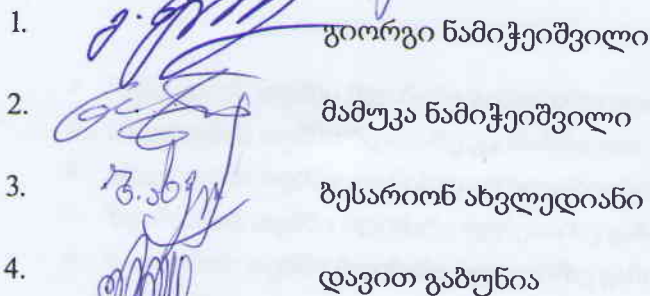 1. გიორგი ნამიჭეიშვილი
2. მამუკა ნამიჭეიშვილი
3. ბესარიონ ახვლედიანი
4. დავით გაბუნია